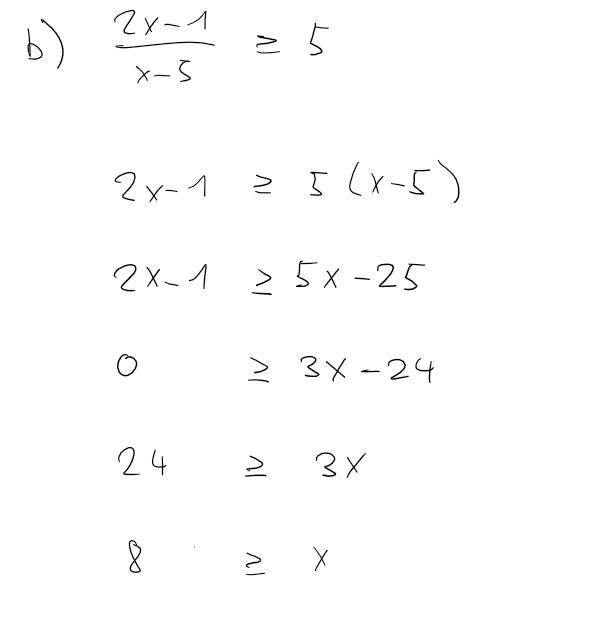 b) (2x-1)/(x-5) ≥ 5
2x-1 ≥ 5(x-5)
2x-1 ≥ 5x-25
0 ≥ 3x-24
24 ≥ 3x
8 ≥ x